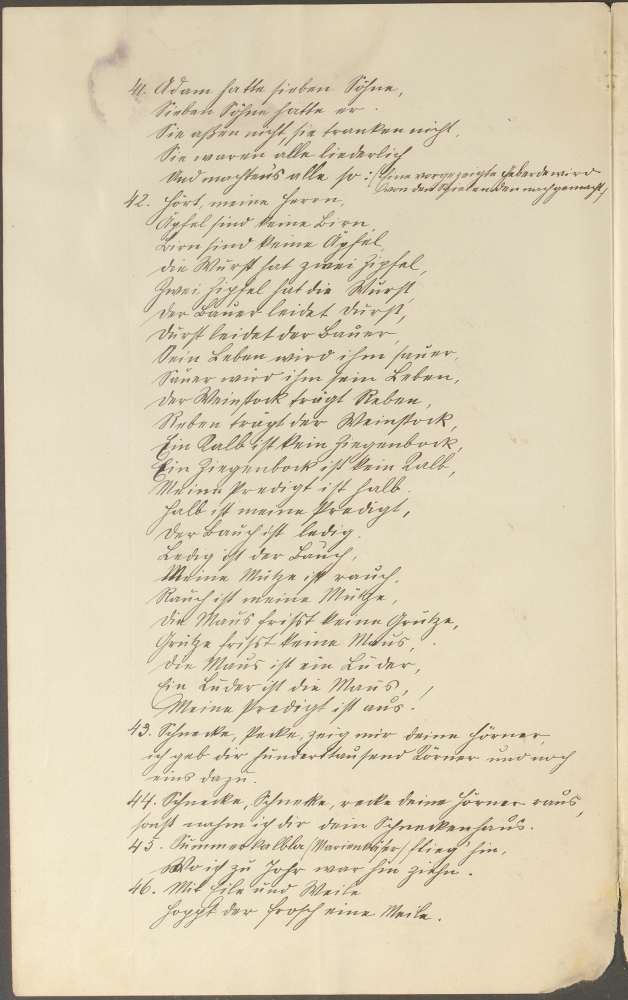 41. Adam hatte sieben Söhne,
Sieben Söhne hatte er.
Sie aßen nicht, sie tranken nicht,
Sie waren alle liederlich
Und machten's alle so: (Eine vorgezeigte Geberde wird
von den Spielenden nachgemacht)
42. Hört, meine Herrn,
Äpfel sind keine Birn
Birn sind keine Äpfel,
die Wurst hat zwei Zipfel,
Zwei Zipfel hat die Wurst
der Bauer leidet Durst,
Durst leidet der Bauer,
Sein Leben wird ihm sauer,
Sauer wird ihm sein Leben,
der Weinstock trägt Reben,
Reben trägt der Weinstock,
Ein Kalb ist kein Ziegenbock,
Ein Ziegenbock ist kein Kalb,
Meine Predigt ist halb.
Halb ist meine Predigt,
der Bauch ist ledig.
Ledig ist der Bauch,
Meine Mütze ist rauch,
Rauch ist meine Mütze,
die Maus frisst keine Grütze,
Grütze frisst keine Maus,
die Maus ist ein Luder,
Ein Luder ist die Maus,
Meine Predigt ist aus.
43. Schnecke, Pecke, zeig mir deine Hörner,
ich geb dir hunderttausend Körner und noch
eins dazu.
44. Schnecke, Schnecke, recke deine Hörner raus,
sonst nehm ich dir dein Schneckenhaus.
45. Summerkalbla (Marienkäfer) flieg' hin,
Wo ich zu Johr war hin ziehn.
46. Mit Eile und Weile
hoppt der Frosch eine Meile.